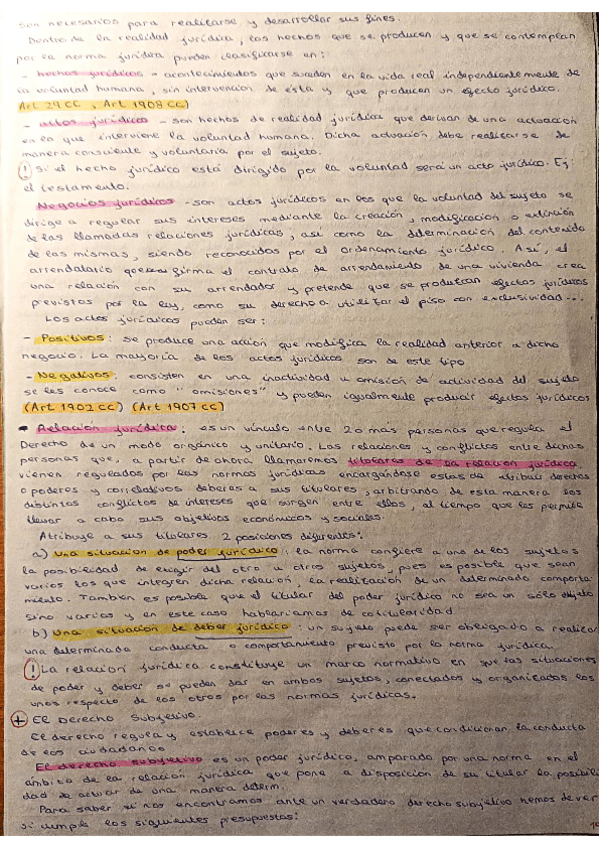 son necesarios para realizarse y desarrollar sus fines.
Dentro de la realidad jurídica, los hechos que se producen y que se contemplan
por la norma jurídica pueden clasificarse en:
- hechos jurídicos - acontecimientos que suceden en la vida real independientemente de
la voluntad humana, sin intervención de esta y que producen un efecto jurídico.
Art 29 CC, Art 1908 CC)
- actos jurídicos - son hechos de realidad jurídica que derivan de una actuación
en la que interviene la voluntad humana. Dicha actuación debe realizarse de
manera consciente y voluntaria por el sujeto.
! Si el hecho jurídico está dirigido por la voluntad será un acto jurídico. Ej:
el testamento.
Negocios jurídicos - son actos jurídicos en los que la voluntad del sujeto se
dirige a regular sus intereses mediante la creación, modificación o extinción
de las llamadas relaciones jurídicas, así como la determinación del contenido
de las mismas, siendo reconocidos por el ordenamiento jurídico. Así, el
arrendatario que firma el contrato de arrendamiento de una vivienda crea
una relación con su arrendador y pretende que se produzcan efectos jurídicos
previstos por la ley, como su derecho a utilizar el piso con exclusividad...
Los actos jurídicos pueden ser:
- Positivos: se produce una acción que modifica la realidad anterior a dicho
negocio. La mayoría de los actos jurídicos son de este tipo
- Negativos: consisten en una inactividad u omisión de actividad del sujeto
se les conoce como "omisiones" y pueden igualmente producir efectos jurídicos
(Art 1902 CC) (Art 1907 CC)
Relación jurídica: es un vínculo entre 2 o más personas que regula el
Derecho de un modo orgánico y unitario. Las relaciones y conflictos entre dichas
personas que, a partir de ahora llamaremos titulares de la relación jurídica,
vienen regulados por las normas jurídicas encargándose estas de atribuir derechos
o poderes y correlativos deberes a sus titulares, arbitrando de esta manera los
distintos conflictos de intereses que surgen entre ellos, al tiempo que les permite
llevar a cabo sus objetivos económicos y sociales.
Atribuye a sus titulares 2 posiciones diferentes:
a) una situación de poder jurídico: la norma confiere a uno de los sujetos
la posibilidad de exigir del otro u otros sujetos, pues es posible que sean
varios los que integren dicha relación, la realización de un determinado comporta-
miento. Tambien es posible que el titular del poder jurídico no sea un sólo sujeto
sino varios y en este caso hablaríamos de cotitularidad
b) una situación de deber jurídico: un sujeto puede ser obligado a realizar
una determinada conducta o comportamiento previsto por la norma jurídica.
! La relación jurídica constituye un marco normativo en que las situaciones
de poder y deber se pueden dar en ambos sujetos, conectados y organizados los
unos respecto de los otros por las normas jurídicas.
+ El Derecho Subjetivo.
El derecho regula y establece poderes y deberes que condicionan la conducta
de los ciudadanos
El derecho subjetivo es un poder jurídico, amparado por una norma en el
ámbito de la relación jurídica que pone a disposición de su titular la posibili
dad de actuar de una manera determ.
Para saber si nos encontramos ante un verdadero derecho subjetivo hemos de ver
si cumple los siguientes presupuestos: